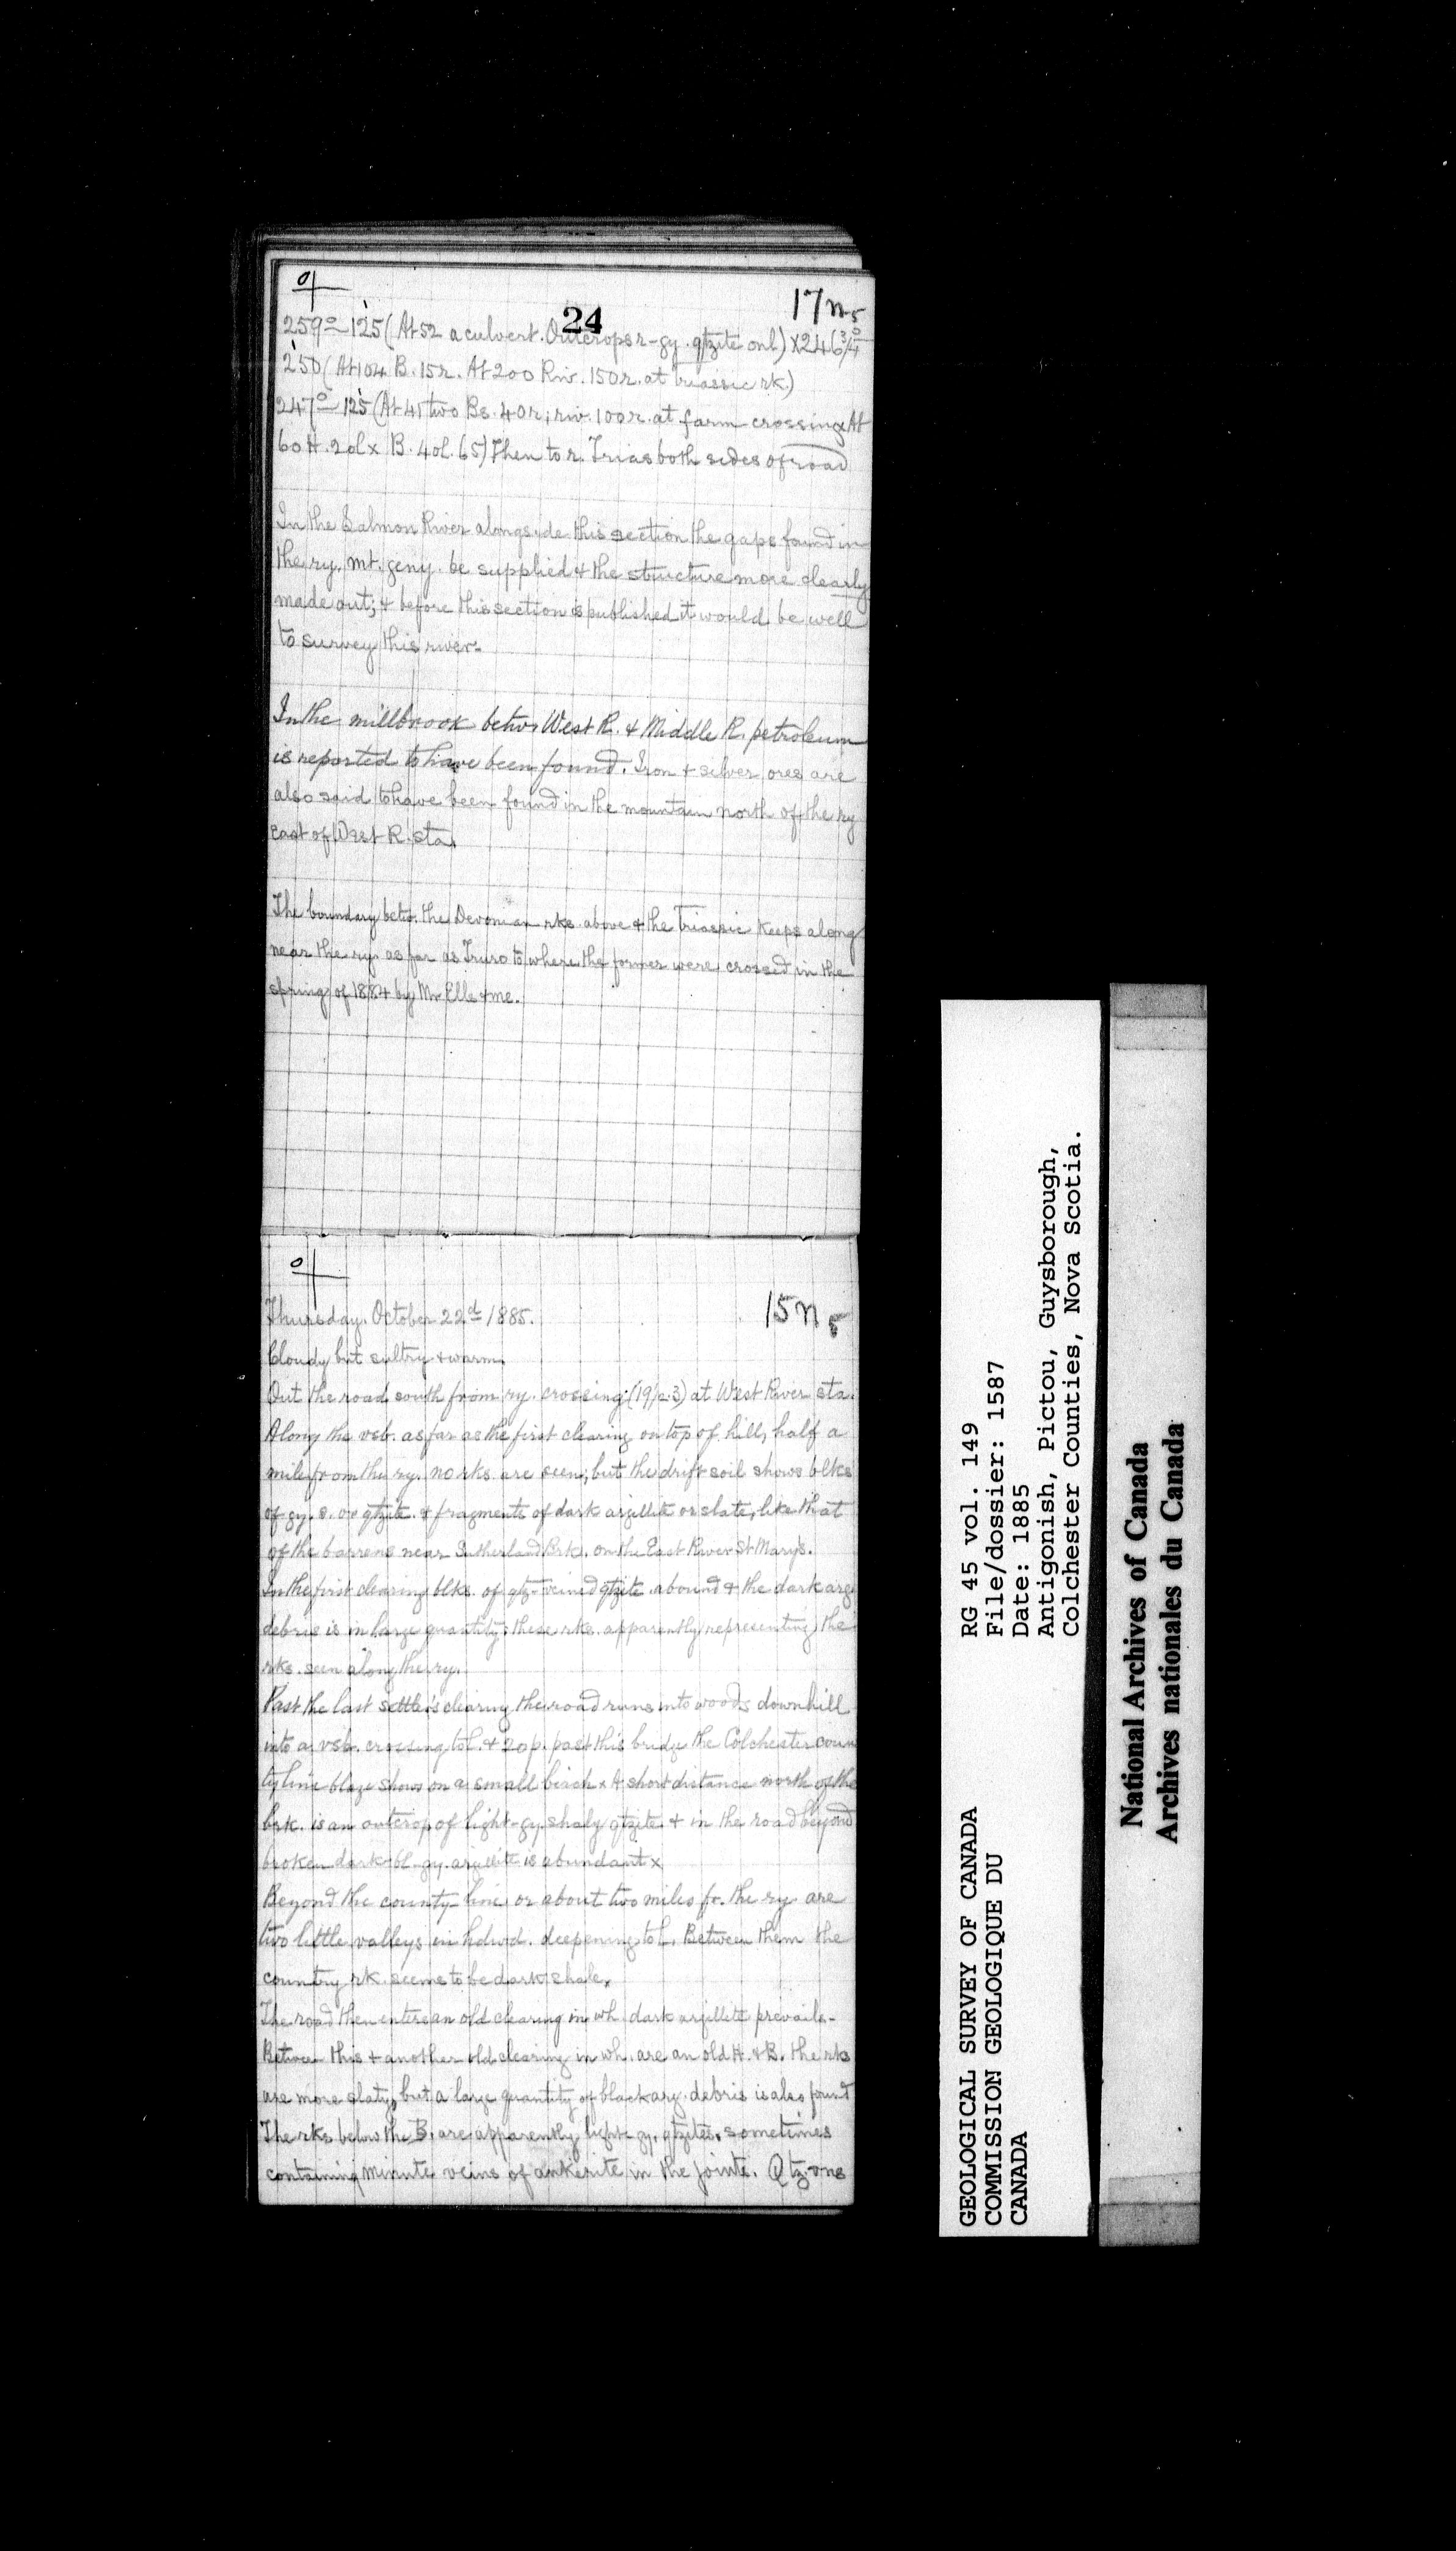 24
17 n 5
259° 125 (At 52 a culvert. Outcrops r-gy. qtzite onl) x 246 3/4°
250 (At 104 B. 15r. At 200 Riv. 150r. at triassic rk.)
247° 125 (At 41 two Bs. 40r; riv. 100r. at farm crossing x At
60 H. 20l x B. 40l. 65) Then to r. Trias both sides of road
In the Salmon River alongside this section the gaps found in
the ry. mt. geny. be supplied & the structure more clearly
made out; & before this section is published it would be well
to survey this river.
In the millbrook betw. West R. & Middle R. petroleum
is reported to have been found. Iron & silver ores are
also said to have been found in the mountain north of the ry
east of West R. sta.
The boundary betw. the Devonian rks. above & the Triassic keeps along
near the ry. as far as Truro to where the former were crossed in the
spring of 1884 by Mr Ells & me.
15 n 5
Thursday. October 22d 1885.
Cloudy but sultry & warm.
Out the road south from ry. crossing (19/p.3) at West River sta.
Along the vsb. as far as the first clearing on top of hill, half a
mile from the ry. no rks. are seen; but the drift soil shows blks
of gy. s. or qtzite. & fragments of dark argillite or slate, like that
of the barrens near Sutherland Brk. on the East River St Mary's.
In the first clearing blks. of qtz-veined qtzite abound & the dark arg.
debris is in large quantity: these rks. apparently representing the
rks. seen along the ry.
Past the last settler's clearing the road runs into woods downhill
into a vsb. crossing to l. & 20 p. past this bridge the Colchester coun
ty line blaze shows on a small birch x A short distance north of the
brk. is an outcrop of light-gy. shaly qtzite & in the road beyond
broken dark-bl-gy. argillite is abundant x
Beyond the county-line or about two miles fr. the ry are
two little valleys in hdwd. deepening to l. Between them the
country rk. seems to be dark shale x
The road then enters an old clearing in wh. dark argillite prevails.
Between this & another old clearing in wh. are an old H. & B. the rks
are more slaty, but a large quantity of black arg. debris is also found
The rks. below the B. are apparently light-gy. qtzites, sometimes
containing minute veins of ankerite in the joints. Qtz-vns
RG 45 vol. 149
File/dossier: 1587
Date: 1885
Antigonish, Pictou, Guysborough,
Colchester Counties, Nova Scotia.
GEOLOGICAL SURVEY OF CANADA
COMMISSION GEOLOGIQUE DU
CANADA
National Archives of Canada
Archives nationales du Canada